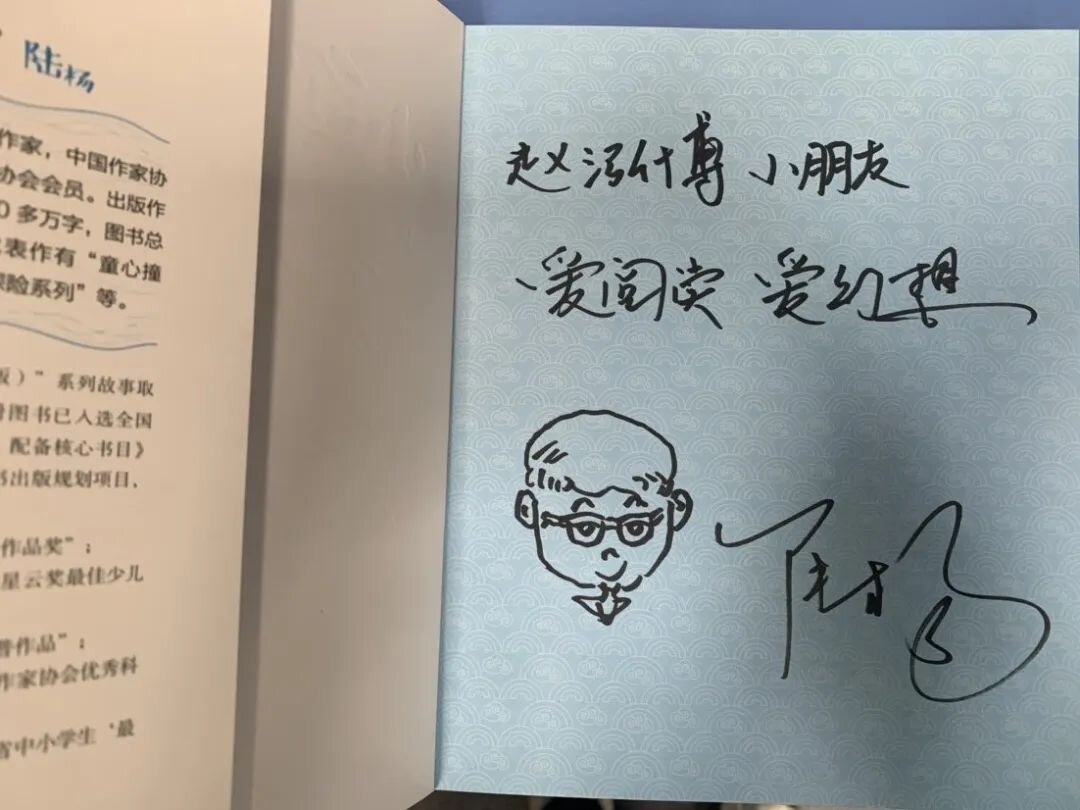 陆杨
作家，中国作家协
协会会员。出版作
0 多万字，图书总
表作有“童心撞
险系列”等。
版）”系列故事取
册图书已入选全国
配备核心书目》
书出版规划项目，
作品奖”；
星云奖最佳少儿
普作品”；
作家协会优秀科
省中小学生‘最
赵泓博 小朋友
爱阅读 爱幻想
陆杨